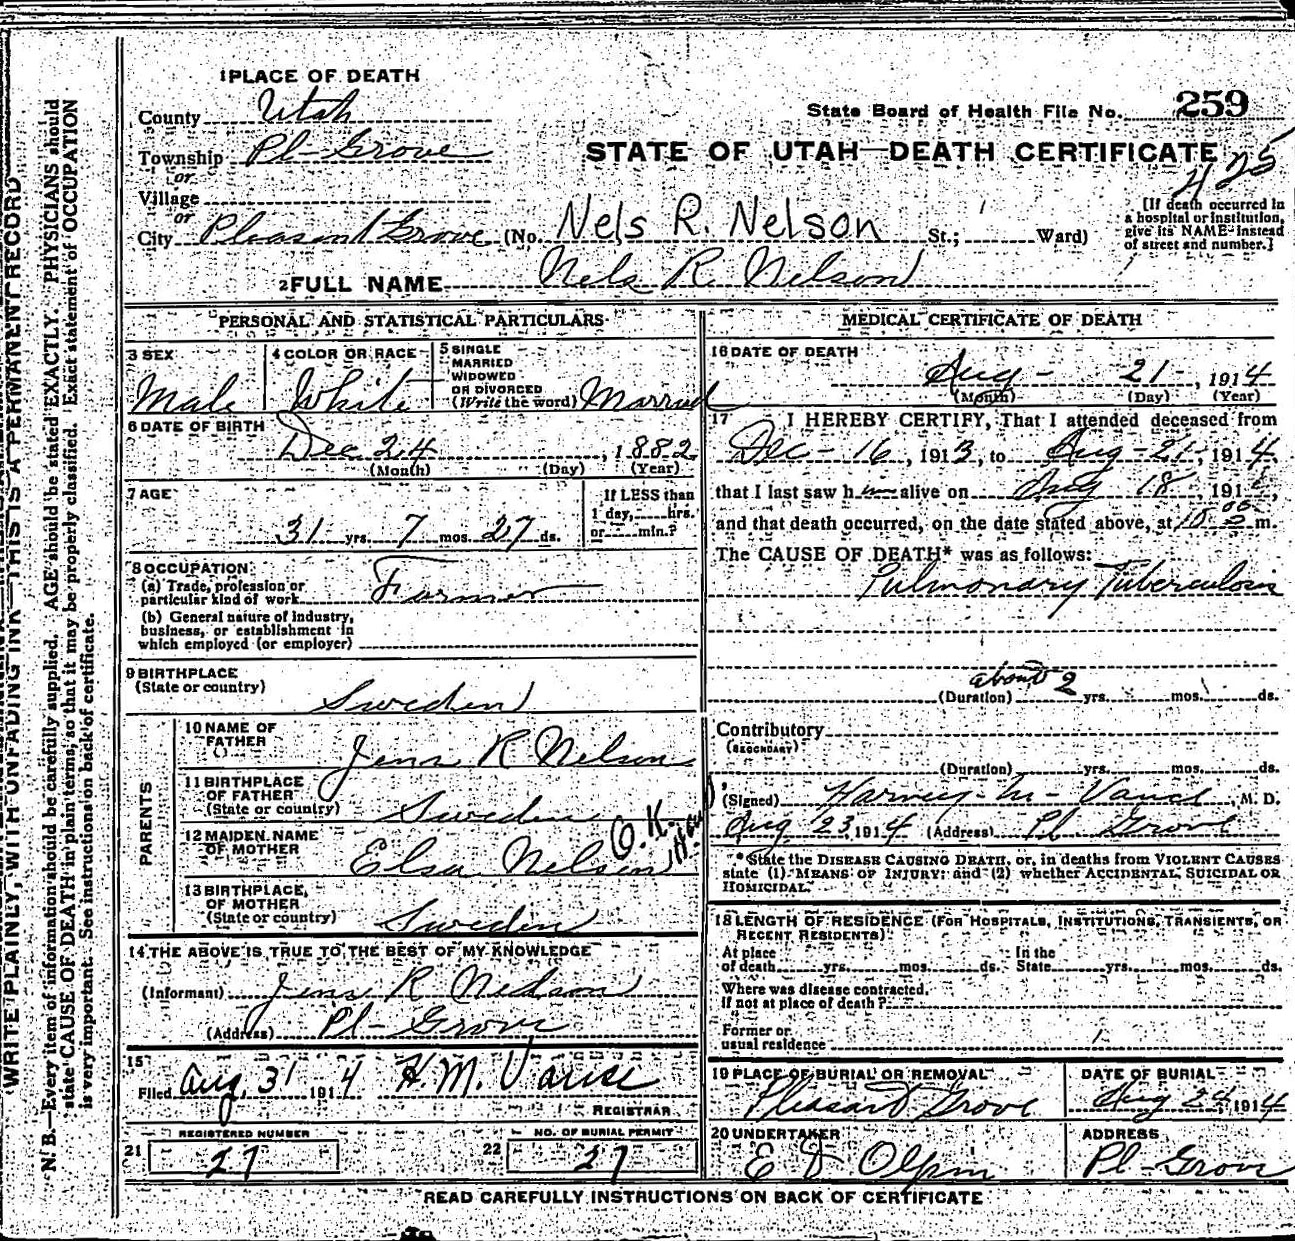 WRITE PLAINLY, WITH UNFADING INK—THIS IS A PERMANENT RECORD
N. B.—Every item of information should be carefully supplied. AGE should be stated EXACTLY. PHYSICIANS should
state CAUSE OF DEATH in plain terms, so that it may be properly classified. Exact statement of OCCUPATION
is very important. See instructions on back of certificate.
1 PLACE OF DEATH
County Utah
State Board of Health File No. 259
Township Pl-Grove
or
STATE OF UTAH—DEATH CERTIFICATE
425
Village
or
City Pleasant Grove (No. Nels R. Nelson St.; Ward)
[If death occurred in
a hospital or institution,
give its NAME instead
of street and number.]
2 FULL NAME Nels R Nelson
PERSONAL AND STATISTICAL PARTICULARS
3 SEX
Male
4 COLOR OR RACE
White
5 SINGLE
MARRIED
WIDOWED
OR DIVORCED
(Write the word) Married
6 DATE OF BIRTH
Dec 24, 1882
(Month) (Day) (Year)
7 AGE
31 yrs. 7 mos. 27 ds.
If LESS than
1 day, hrs.
or min.?
8 OCCUPATION
(a) Trade, profession or
particular kind of work Farmer
(b) General nature of industry,
business, or establishment in
which employed (or employer)
9 BIRTHPLACE
(State or country)
Sweden
PARENTS
10 NAME OF
FATHER
Jens R Nelson
11 BIRTHPLACE
OF FATHER
(State or country)
Sweden
12 MAIDEN NAME
OF MOTHER
Elsa Nelson
O.K.
13 BIRTHPLACE
OF MOTHER
(State or country)
Sweden
14 THE ABOVE IS TRUE TO THE BEST OF MY KNOWLEDGE
(Informant) Jens R Nelson
(Address) Pl-Grove
15
Filed Aug, 31 1914 H. M. Vance
REGISTRAR
REGISTERED NUMBER
21 27
NO. OF BURIAL PERMIT
22 27
MEDICAL CERTIFICATE OF DEATH
16 DATE OF DEATH
Aug- 21-, 1914
(Month) (Day) (Year)
17 I HEREBY CERTIFY, That I attended deceased from
Dec-16, 1913, to Aug-21, 1914,
that I last saw him alive on Aug 18, 191
and that death occurred, on the date stated above, at 10 m.
The CAUSE OF DEATH* was as follows:
Pulmonary Tuberculosis
about 2
(Duration) yrs. mos. ds.
Contributory
(SECONDARY)
(Duration) yrs. mos. ds.
(Signed) Harvey-M-Vance, M. D.
Aug 23, 1914 (Address) Pl Grove
*State the DISEASE CAUSING DEATH, or, in deaths from VIOLENT CAUSES
state (1) MEANS OF INJURY; and (2) whether ACCIDENTAL, SUICIDAL OR
HOMICIDAL.
18 LENGTH OF RESIDENCE (FOR HOSPITALS, INSTITUTIONS, TRANSIENTS, OR
RECENT RESIDENTS)
At place In the
of death yrs. mos. ds. State yrs. mos. ds.
Where was disease contracted,
If not at place of death?
Former or
usual residence
19 PLACE OF BURIAL OR REMOVAL
Pleasant Grove
DATE OF BURIAL
Aug 24, 1914
20 UNDERTAKER
E D Olpin
ADDRESS
Pl-Grove
READ CAREFULLY INSTRUCTIONS ON BACK OF CERTIFICATE